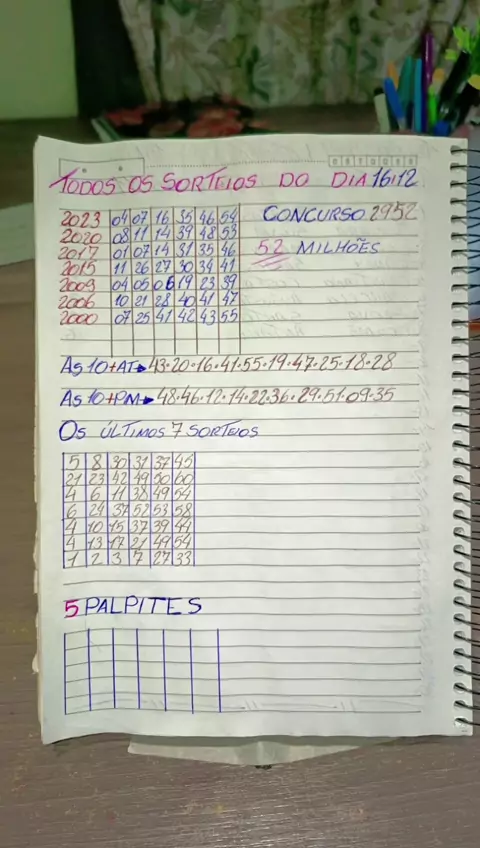 TODOS OS SORTEIOS DO DIA 16:12
CONCURSO 2952
52 MILHÕES
2023 04 07 16 35 46 54
2020 08 11 14 39 48 53
2017 01 07 14 31 35 46
2015 11 26 27 30 34 41
2009 04 05 06 19 23 39
2006 10 21 28 40 41 47
2000 07 25 41 42 43 55
AS 10 + AT → 43.20.16.41.55.19.47.25.18.28
AS 10 + PM → 48.46.12.14.22.36.29.51.09.35
OS ÚLTIMOS 7 SORTEIOS
5 8 30 31 37 45
21 23 42 49 50 60
4 6 11 38 49 54
6 24 37 52 53 58
4 10 15 37 39 44
4 13 17 21 49 54
1 2 3 7 27 33
5 PALPITES